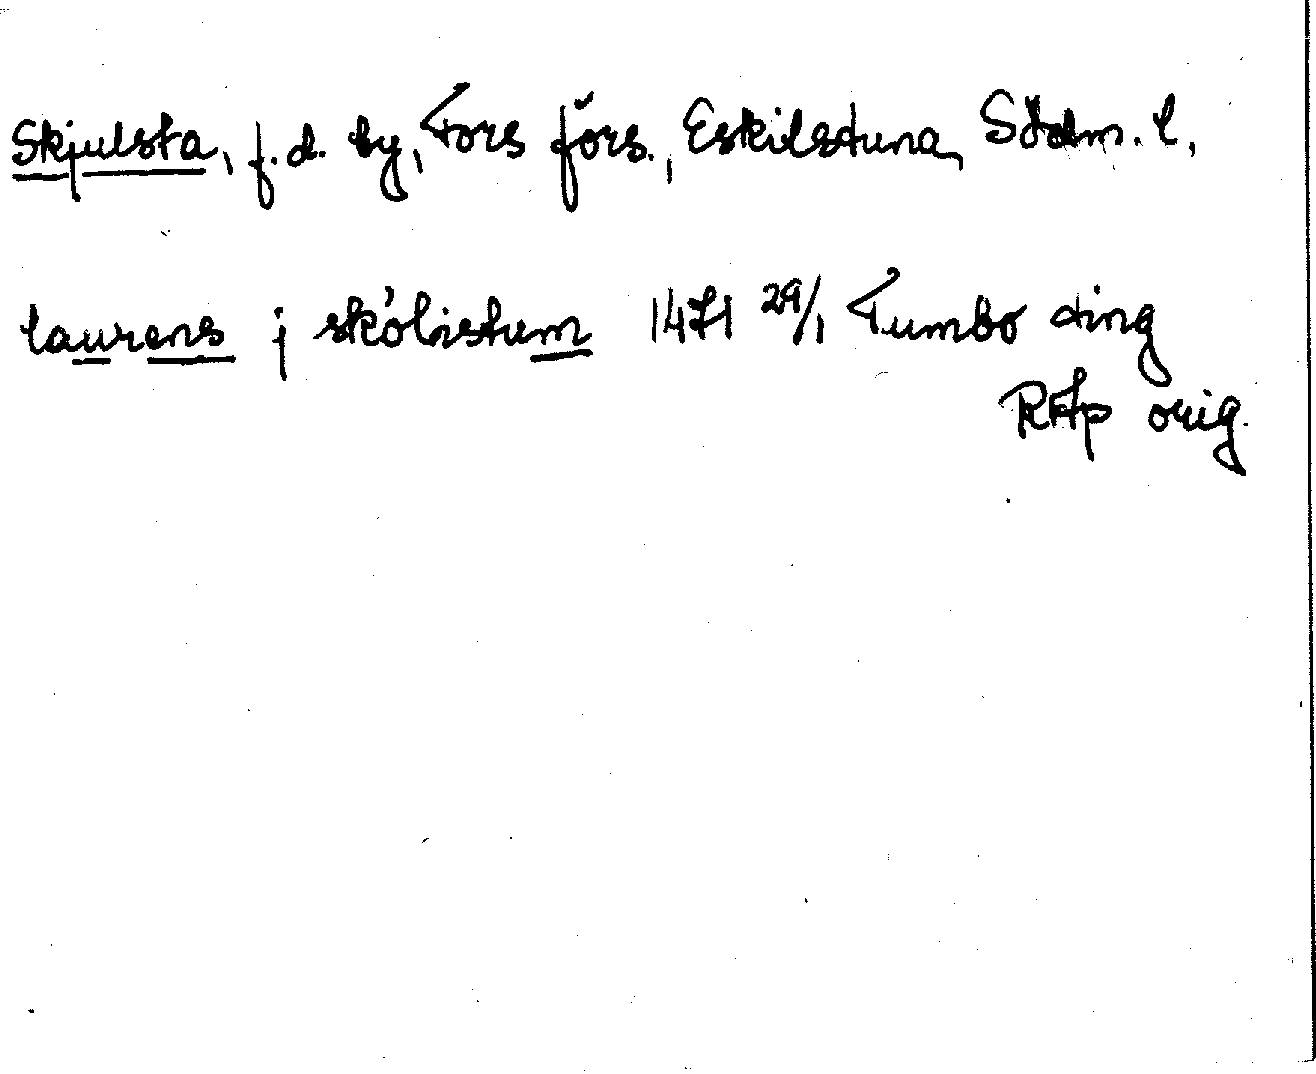 Skjulsta, f.d. by, Fors förs., Eskilstuna, Södm. l.
laurens j skólistum 1471 29/1 Tumbo ting
RAp orig.